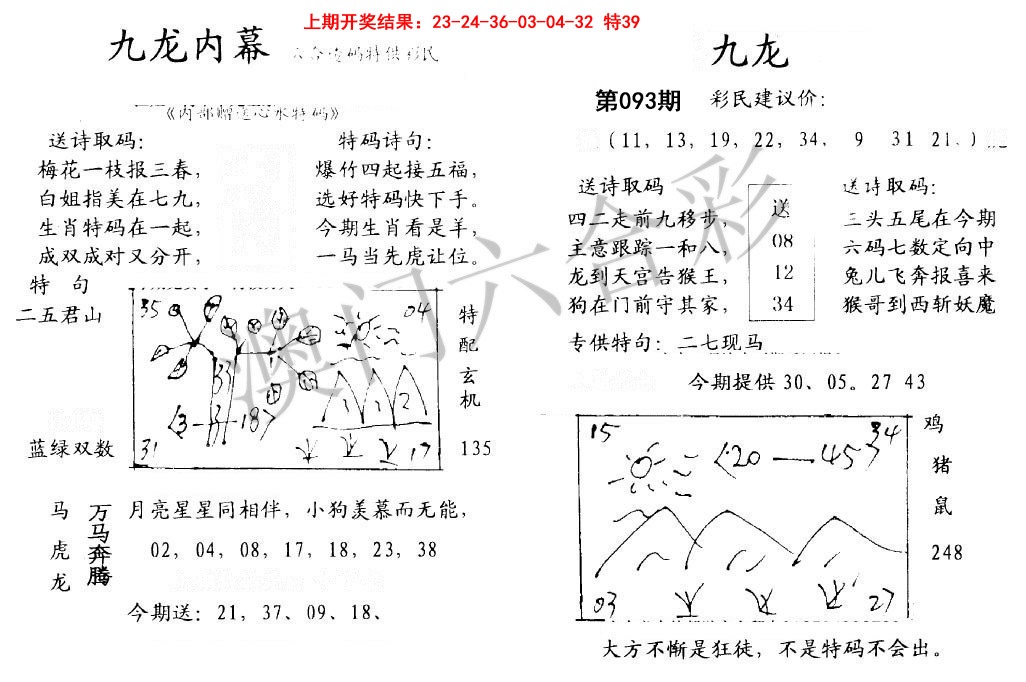 上期开奖结果：23-24-36-03-04-32 特39
九龙内幕
特供彩民
《内部赠送心水特码》
送诗取码：
梅花一枝报三春，
白姐指美在七九，
生肖特码在一起，
成双成对又分开，
特码诗句：
爆竹四起接五福，
选好特码快下手。
今期生肖看是羊，
一马当先虎让位。
特 句
二五君山
蓝绿双数
35
04
33
<3-3-187
1 1 2
31
17
特配玄机
135
马虎龙
万马奔腾
月亮星星同相伴，小狗羡慕而无能，
02，04，08，17，18，23，38
今期送：21，37、09、18、
九龙
第093期 彩民建议价：
（11，13，19，22，34， 9 31 21、）
送诗取码
四二走前九移步，
主意跟踪一和八，
龙到天宫告猴王，
狗在门前守其家，
送
08
12
34
送诗取码：
三头五尾在今期
六码七数定向中
兔儿飞奔报喜来
猴哥到西斩妖魔
专供特句：二七现马
今期提供 30、05。27 43
15
34
<20—457
03
27
鸡猪鼠
248
大方不惭是狂徒，不是特码不会出。
澳门六合彩